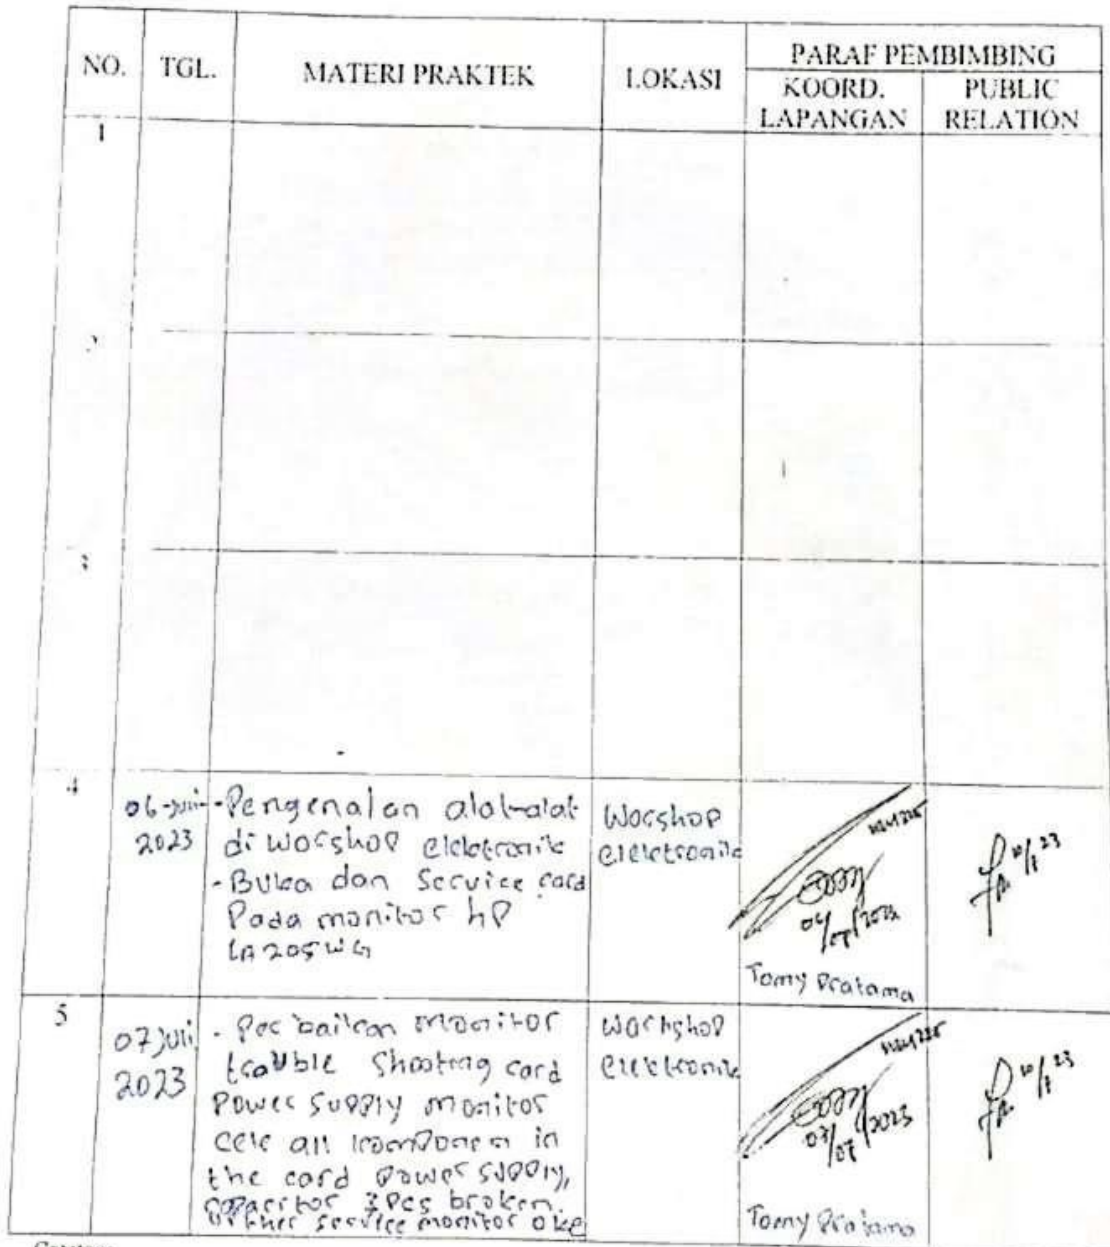 NO.
TGL.
MATERI PRAKTEK
LOKASI
PARAF PEMBIMBING
KOORD.
LAPANGAN
PUBLIC
RELATION
1
2
3
4
06-Juli-
2023
-Pengenalan alat-alat
di Worshop elektronik
-Buka dan Service card
Pada monitor hP
LA205WG
Worshop
elektronik
Tomy Pratama
5
07 Juli
2023
- Perbaikan monitor
trouble shooting card
Power supply monitor
cek all komponen in
the card power supply,
capacitor 3 Pcs broken.
service monitor oke
Workshop
elektronik
Tomy Pratama